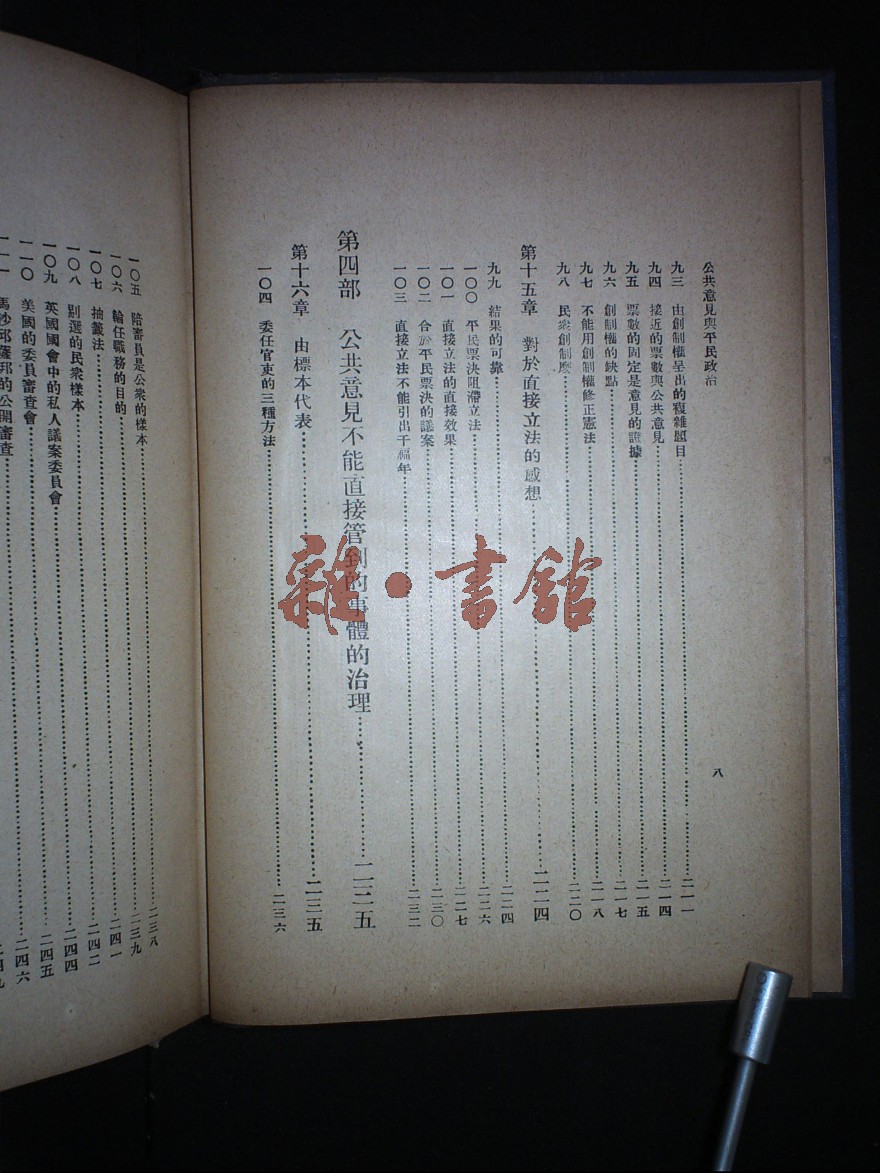 公共意見與平民政治
八
九三 由創制權呈出的複雜題目 二一一
九四 接近的票數與公共意見 二一四
九五 票數的固定是意見的證據 二一五
九六 創制權的缺點 二一七
九七 不能用創制權修正憲法 二一八
九八 民衆創制麽 二二〇
第十五章 對於直接立法的感想 二二四
九九 結果的可靠 二二四
一〇〇 平民票決阻滯立法 二二六
一〇一 直接立法的直接效果 二二七
一〇二 合於平民票決的議案 二三〇
一〇三 直接立法不能引出千福年 二三二
第四部 公共意見不能直接管到的事體的治理 二三五
第十六章 由標本代表 二三五
一〇四 委任官吏的三種方法 二三六
一〇五 陪審員是公衆的樣本 二三八
一〇六 輪任職務的目的 二三九
一〇七 抽籤法 二四一
一〇八 別選的民衆樣本 二四二
一〇九 英國國會中的私人議案委員會 二四四
一一〇 美國的委員審查會 二四五
一一一 馬沙邱薩邦的公開審查 二四六
雜·書館